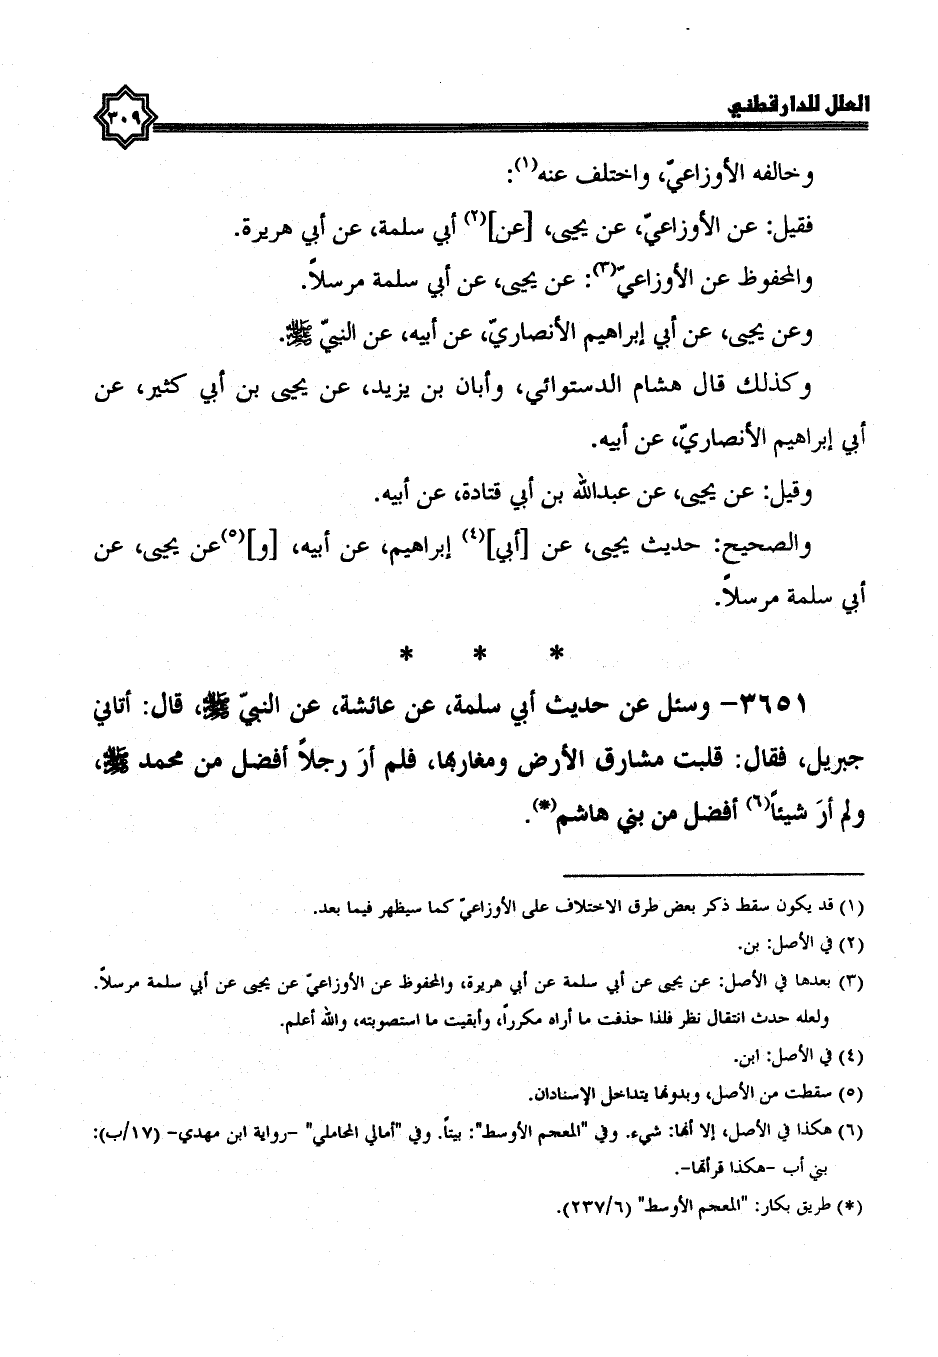 العلل للدارقطني
٣٠٩
وخالفه الأوزاعيّ، واختلف عنه(١):
فقيل: عن الأوزاعيّ، عن يحيى، [عن](٢) أبي سلمة، عن أبي هريرة.
والمحفوظ عن الأوزاعيّ(٣): عن يحيى، عن أبي سلمة مرسلاً.
وعن يحيى، عن أبي إبراهيم الأنصاريّ، عن أبيه، عن النبيّ ﷺ.
وكذلك قال هشام الدستوائي، وأبان بن يزيد، عن يحيى بن أبي كثير، عن
أبي إبراهيم الأنصاريّ، عن أبيه.
وقيل: عن يحيى، عن عبدالله بن أبي قتادة، عن أبيه.
والصحيح: حديث يحيى، عن [أبي](٤) إبراهيم، عن أبيه، [و](٥)عن يحيى، عن
أبي سلمة مرسلاً.
* * *
٣٦٥١– وسئل عن حديث أبي سلمة، عن عائشة، عن النبيّ ﷺ، قال: أتاني
جبريل، فقال: قلبت مشارق الأرض ومغاربها، فلم أرَ رجلاً أفضل من محمد ﷺ،
ولم أرَ شيئاً(٦) أفضل من بني هاشم(*).
(١) قد يكون سقط ذكر بعض طرق الاختلاف على الأوزاعيّ كما سيظهر فيما بعد.
(٢) في الأصل: بن.
(٣) بعدها في الأصل: عن يحيى عن أبي سلمة عن أبي هريرة، والمحفوظ عن الأوزاعيّ عن يحيى عن أبي سلمة مرسلاً.
ولعله حدث انتقال نظر فلذا حذفت ما أراه مكرراً، وأبقيت ما استصوبته، والله أعلم.
(٤) في الأصل: ابن.
(٥) سقطت من الأصل، وبدونها يتداخل الإسنادان.
(٦) هكذا في الأصل، إلا أنها: شيء. وفي "المعجم الأوسط": بيتاً. وفي "أمالي المحاملي" –رواية ابن مهدي– (١٧/ب):
بني أب –هكذا قرأتها–.
(*) طريق بكار: "المعجم الأوسط" (٢٣٧/٦).